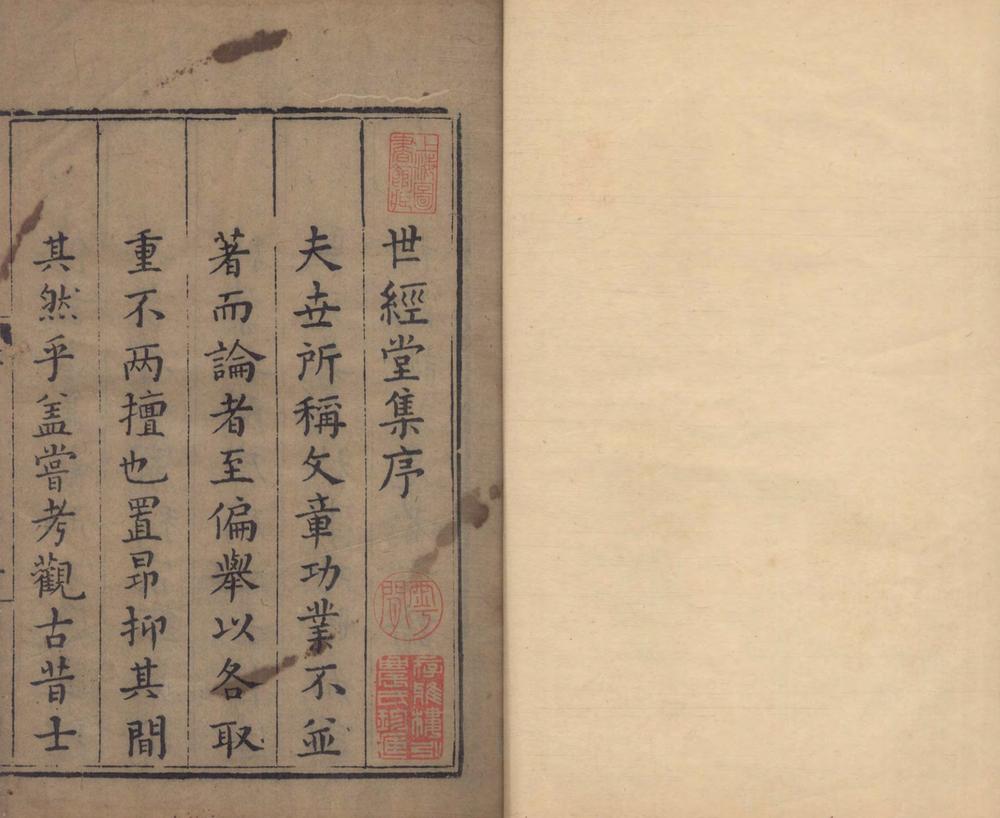 世經堂集序
夫世所稱文章功業不並
著而論者至偏舉以各取
重不两擅也置昂抑其間
其然乎盖嘗考觀古昔士
上海圖書館藏